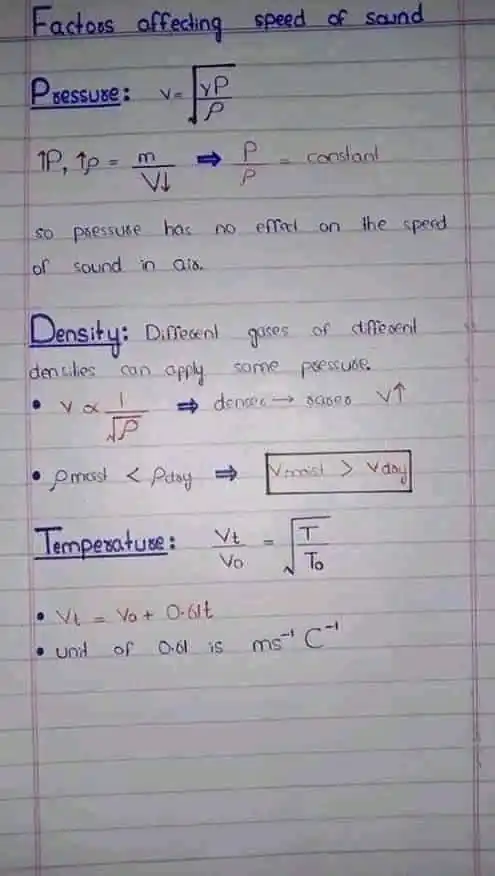 Factors affecting speed of sound
Pressure: v = √(γP/ρ)
↑P, ↑ρ = m/V↓ ⇒ P/ρ = constant
so pressure has no effect on the speed
of sound in air.
Density: Different gases of different
densities can apply same pressure.
• v ∝ 1/√ρ ⇒ denser → rarer v↑
• ρmoist < ρdry ⇒ Vmoist > Vdry
Temperature: Vt/Vo = √(T/To)
• Vt = Vo + 0.61t
• unit of 0.61 is ms⁻¹ C⁻¹